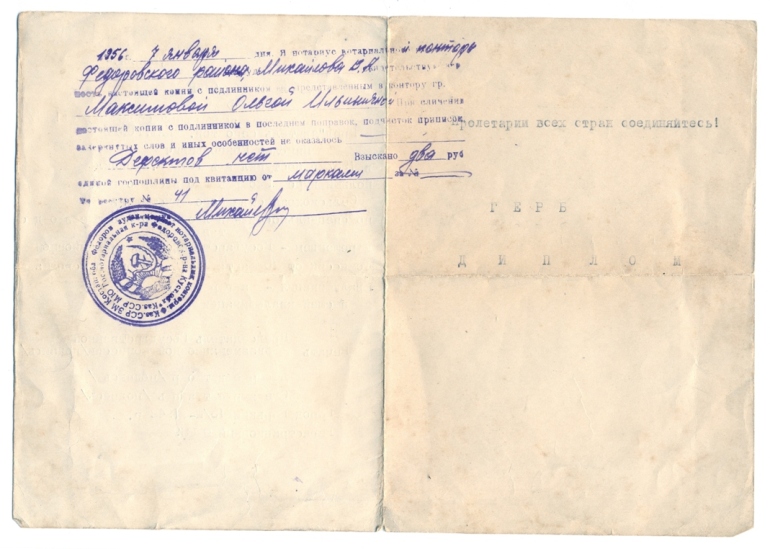 1956. 7 января дня. Я нотариус нотариальной конторы
Федоровского района, Михайлова
настоящей копии с подлинником представленным в контору гр.
Максимовой Ольгой Ильиничной При сличении
настоящей копии с подлинником в последнем поправок, подчисток приписок,
зачеркнутых слов и иных особенностей не оказалось
Дефектов нет Взыскано два руб
единой госпошлины под квитанцию от марками за №
По реестру № 41
Пролетарии всех стран соединяйтесь!
ГЕРБ
ДИПЛОМ